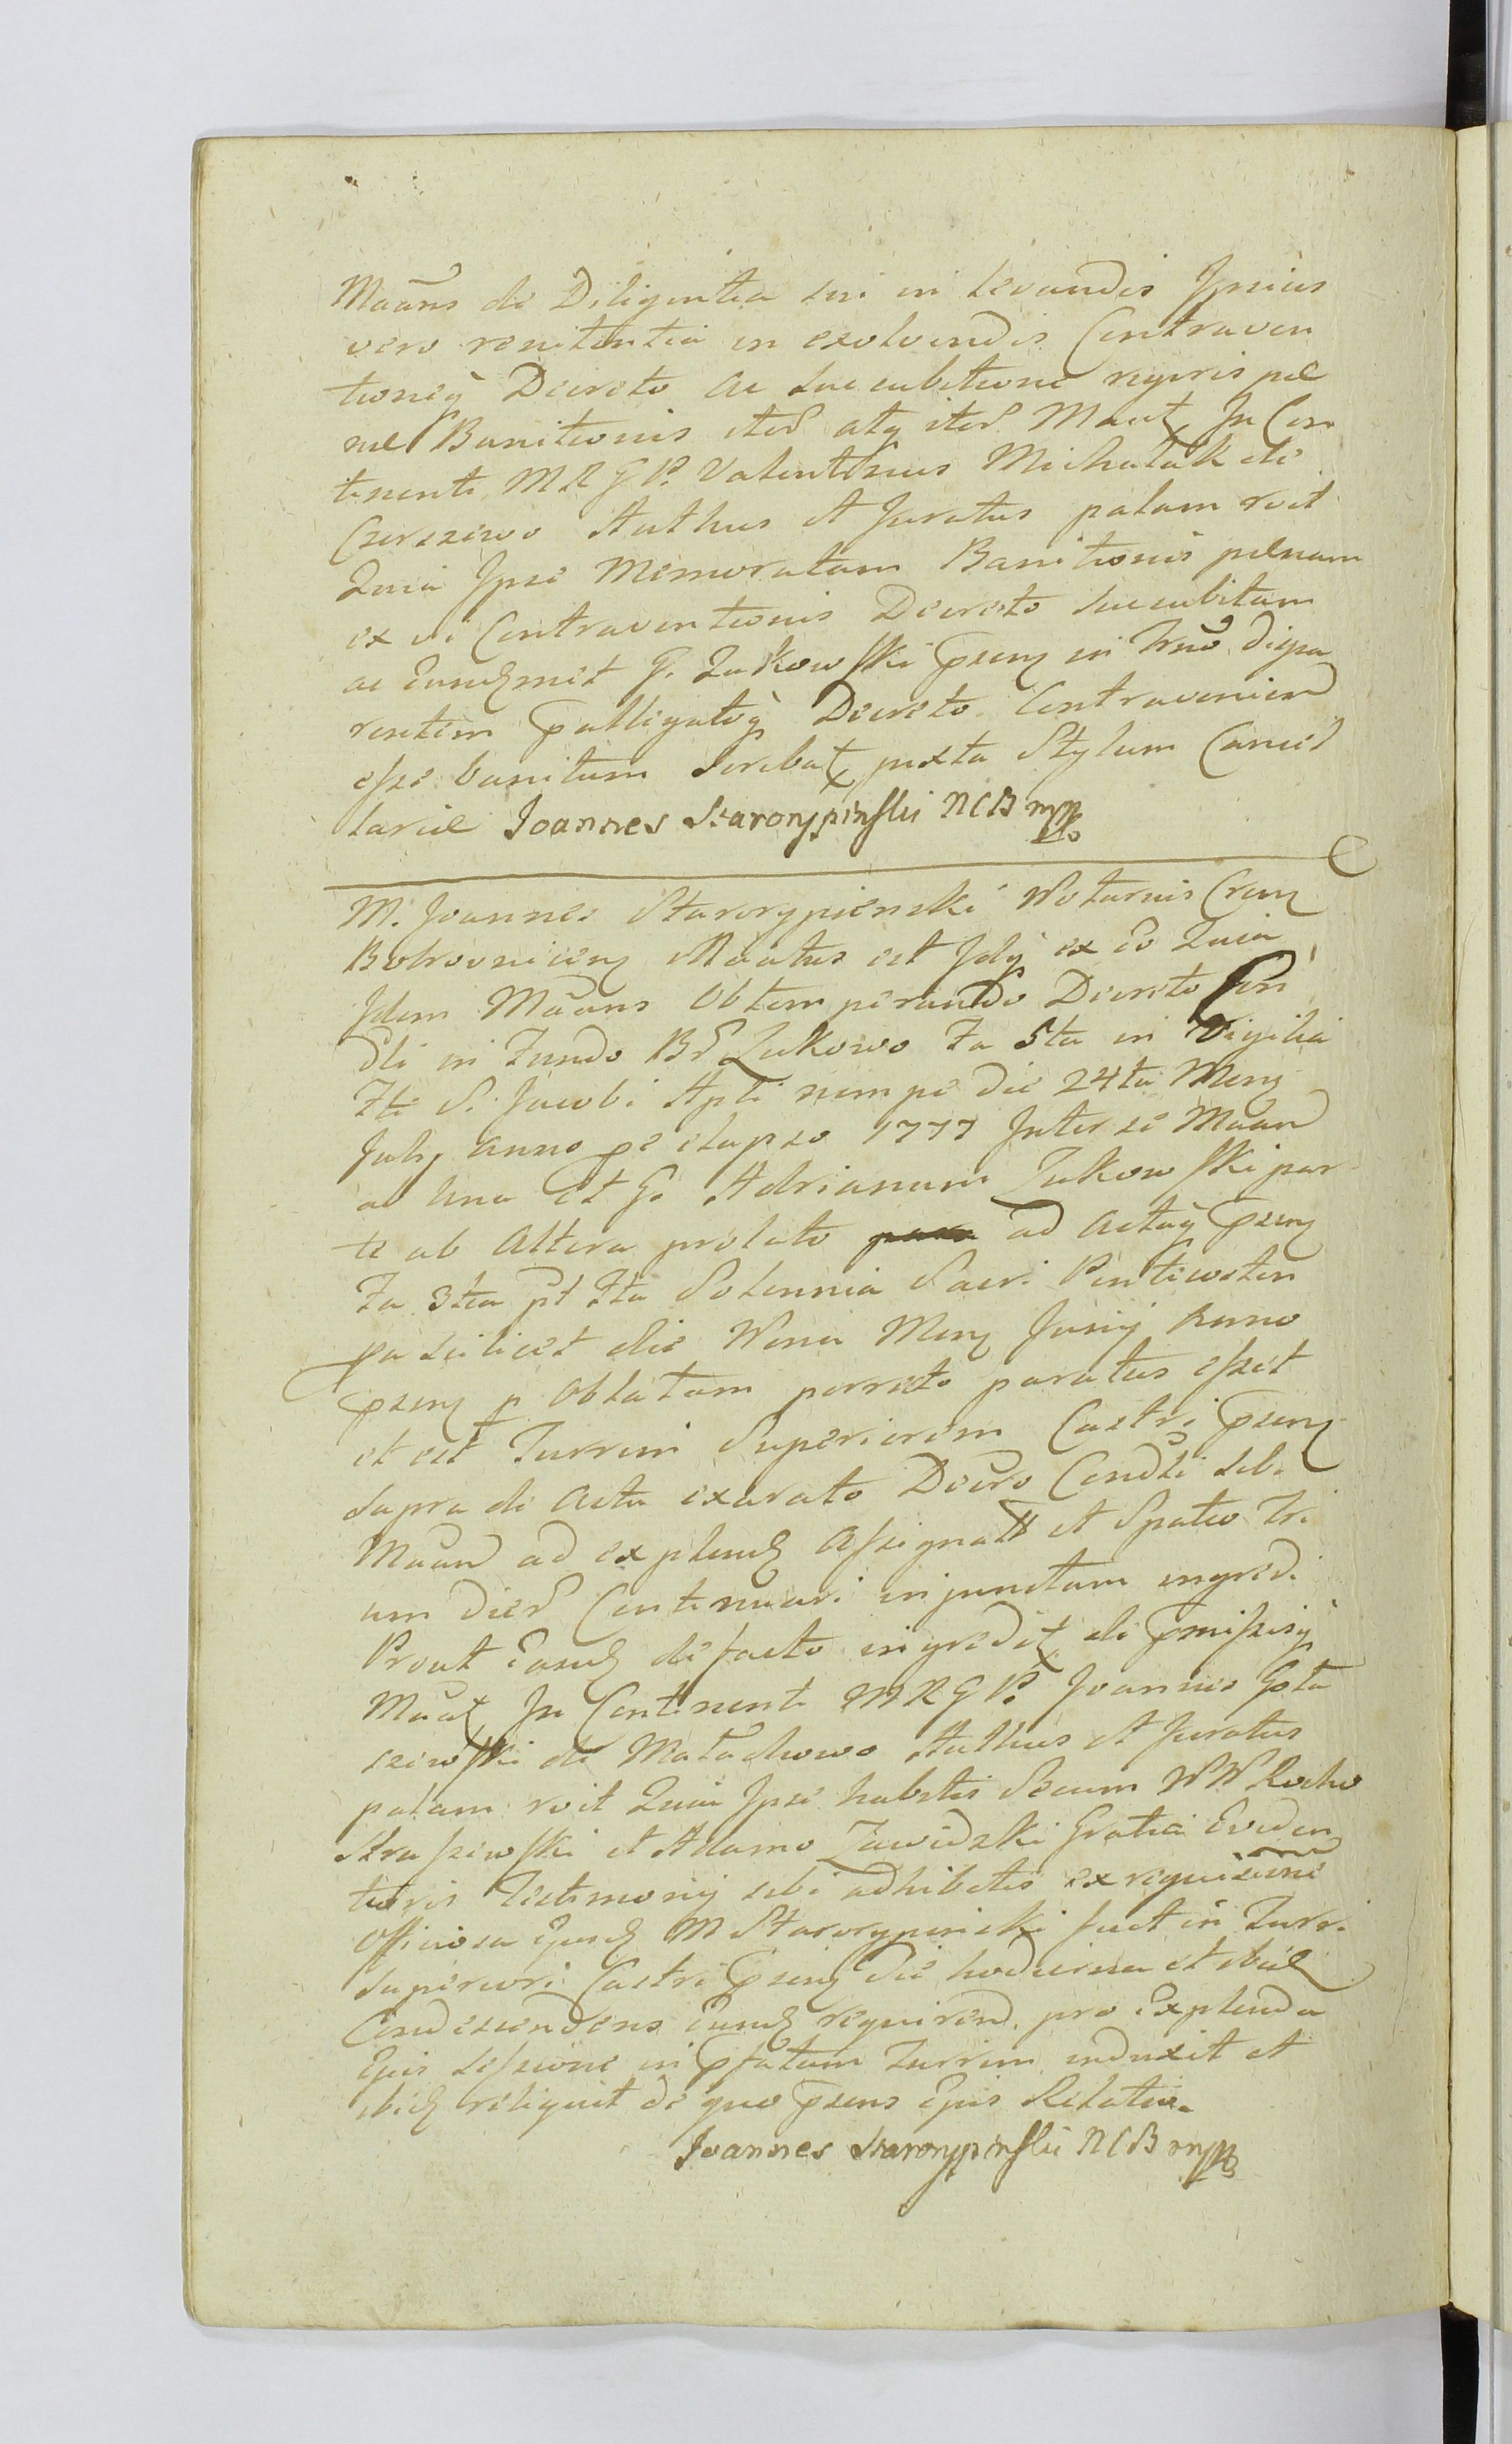 Maans de Diligentia sui in levandis Ipsius
vero renitentia in exolvendis Contraven
tioneq Decreto ac succubitione regeris pœ
nœ Banitionis iter atq iter Maat In Con
tinenti M R G P. Valentinus Michalak de
Czerszewo Authus et Juratus palam roit
Quia Ipse Memoratam Banitionis pœnam
ex vi Contraventionis Decreto succubitam
ac Eundmet G. Zukowski psenz in Trno dispa
rentem palligatoq Decreto Contravenien
esse banitum scribat juxta Stylum Cancel
lariœ Joannes Starorypinski N C B mpp
M. Joannes Starorypienski Notarius Cren
Bobrovnicenz Maatus est Idq ex Eo Quia
Idem Maans Obtemperando Decreto
dli in Fundo Br Zukowo Fa 5ta in Vigilia
Fti S. Jacobi Apli nempe die 24ta Menz
July anno pe elapso 1777 Inter se Maan
ab Una et G. Adrianum Zukowski par
te ab Altera prolato ad Actaq psenz
Fa 3tia pt Fta Solennia Sacri Pentecosten
pa scilicet die Nona Menz Junij Anno
psenz p Oblatam porrecto paratus esset
et est Turrim Superiorem Castri psenz
supra de Acta exarato Decro Condli sibi
Maan ad explend Assignatt et Spatio Tri
um dier Continuari injunctam ingredi
Prout Eand de facto ingredit de pmissisq
Maat In Continenti M R G P. Joannes Gosta
szewski de Małachowo Authus et Juratus
palam roit Quia Ipse habitis Secum NN Rocho
Straszewski et Adamo Zawidzki Gratia Eviden
tioris Testimonij sibi adhibitis ex requisione
Officiosa Ejusd M Starorypinski fuit in Turri
Superiori Castri psenz Die hodierna et ibid
Condescendens Eund requiren. pro Explenda
Ejus sessione in pfatam Turrim induxit et
ibid reliquit de quo psens Ejus Relatio.
Joannes Starorypinski N C B mpp